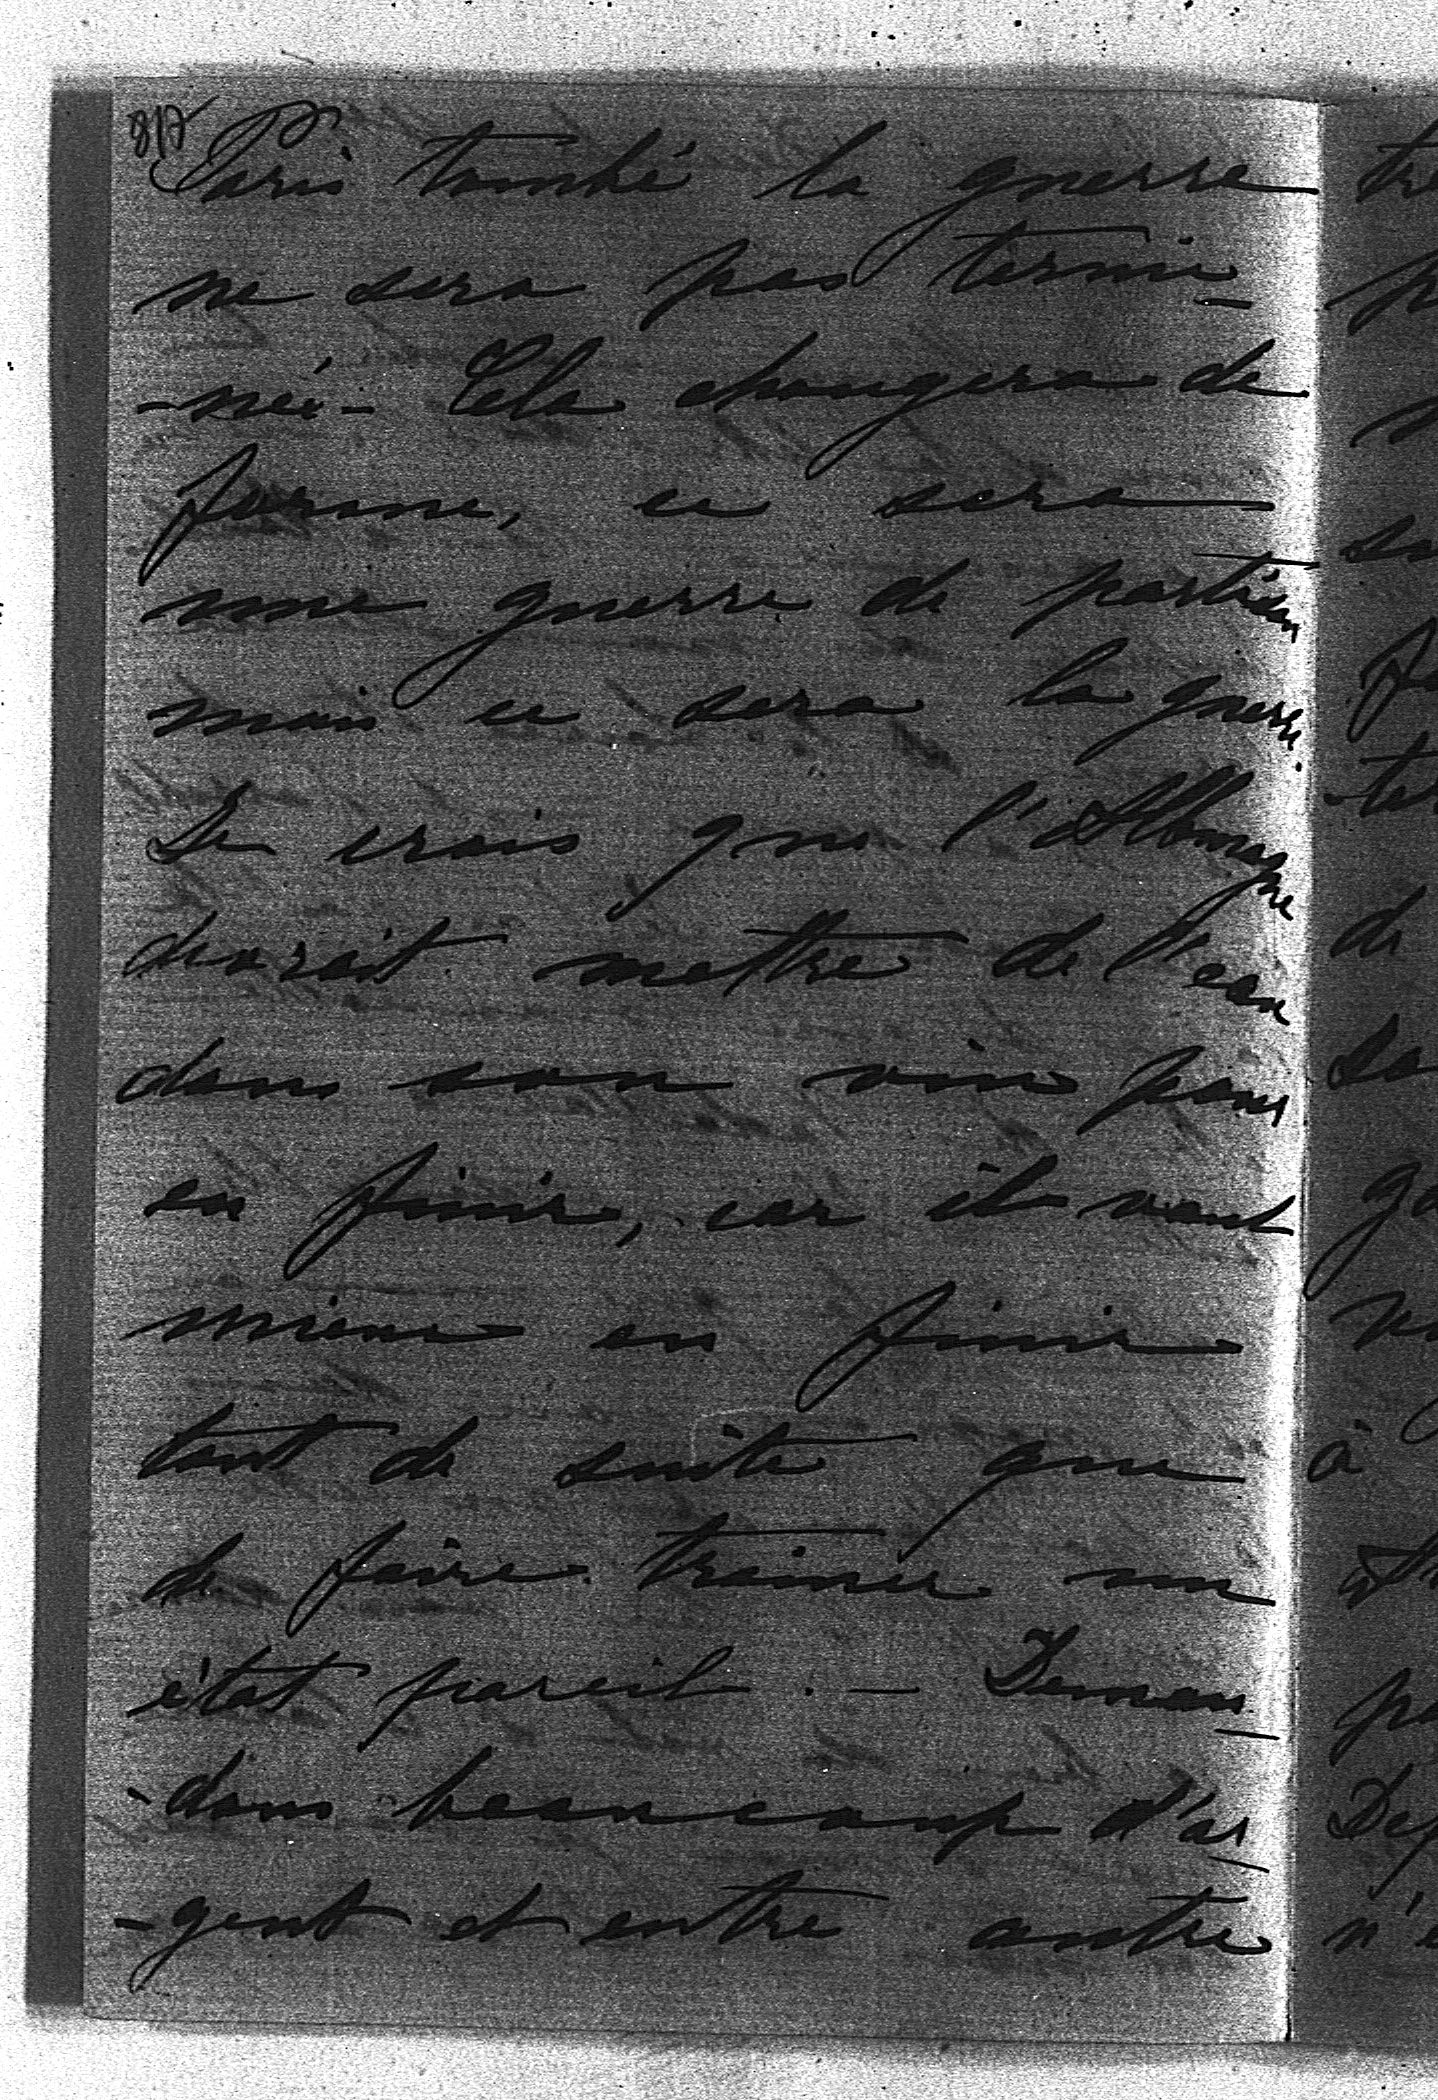 817
Paris tombé la guerre
ne sera pas termi-
-née - Cela changera de
forme, ce sera
une guerre de partisan
mais ce sera la guerre.
Je crois que l'Allemagne
devrait mettre de l'eau
dans son vin pour
en finir, car il vaut
mieux en finir
tout de suite que
de faire trainer un
état pareil. - Deman-
-dons beaucoup d'ar-
-gent et entre autre